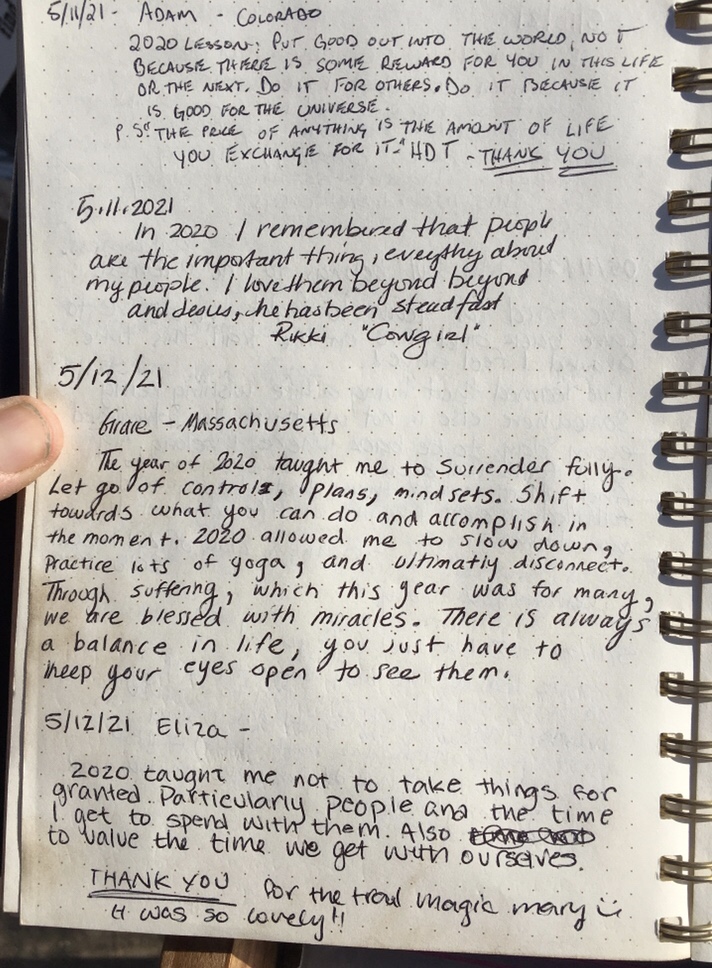 5/11/21 - ADAM - COLORADO
2020 LESSON: PUT GOOD OUT INTO THE WORLD, NOT
BECAUSE THERE IS SOME REWARD FOR YOU IN THIS LIFE
OR THE NEXT. DO IT FOR OTHERS. DO IT BECAUSE IT
IS GOOD FOR THE UNIVERSE.
P.S. "THE PRICE OF ANYTHING IS THE AMOUNT OF LIFE
YOU EXCHANGE FOR IT." HDT - THANK YOU
5.11.2021
In 2020 I remembered that people
are the important thing, about
my people. I love them beyond beyond
and Jesus, he has been steadfast
Rikki "Cowgirl"
5/12/21
Grace - Massachusetts
The year of 2020 taught me to surrender fully.
Let go of controls, plans, mindsets. Shift
towards what you can do and accomplish in
the moment. 2020 allowed me to slow down,
practice lots of yoga, and ultimatly disconnect.
Through suffering, which this year was for many,
we are blessed with miracles. There is always
a balance in life, you just have to
keep your eyes open to see them.
5/12/21 Eliza -
2020 taught me not to take things for
granted. Particularly people and the time
I get to spend with them. Also
to value the time we get with ourselves.
THANK YOU for the trail magic mary
it was so lovely!!